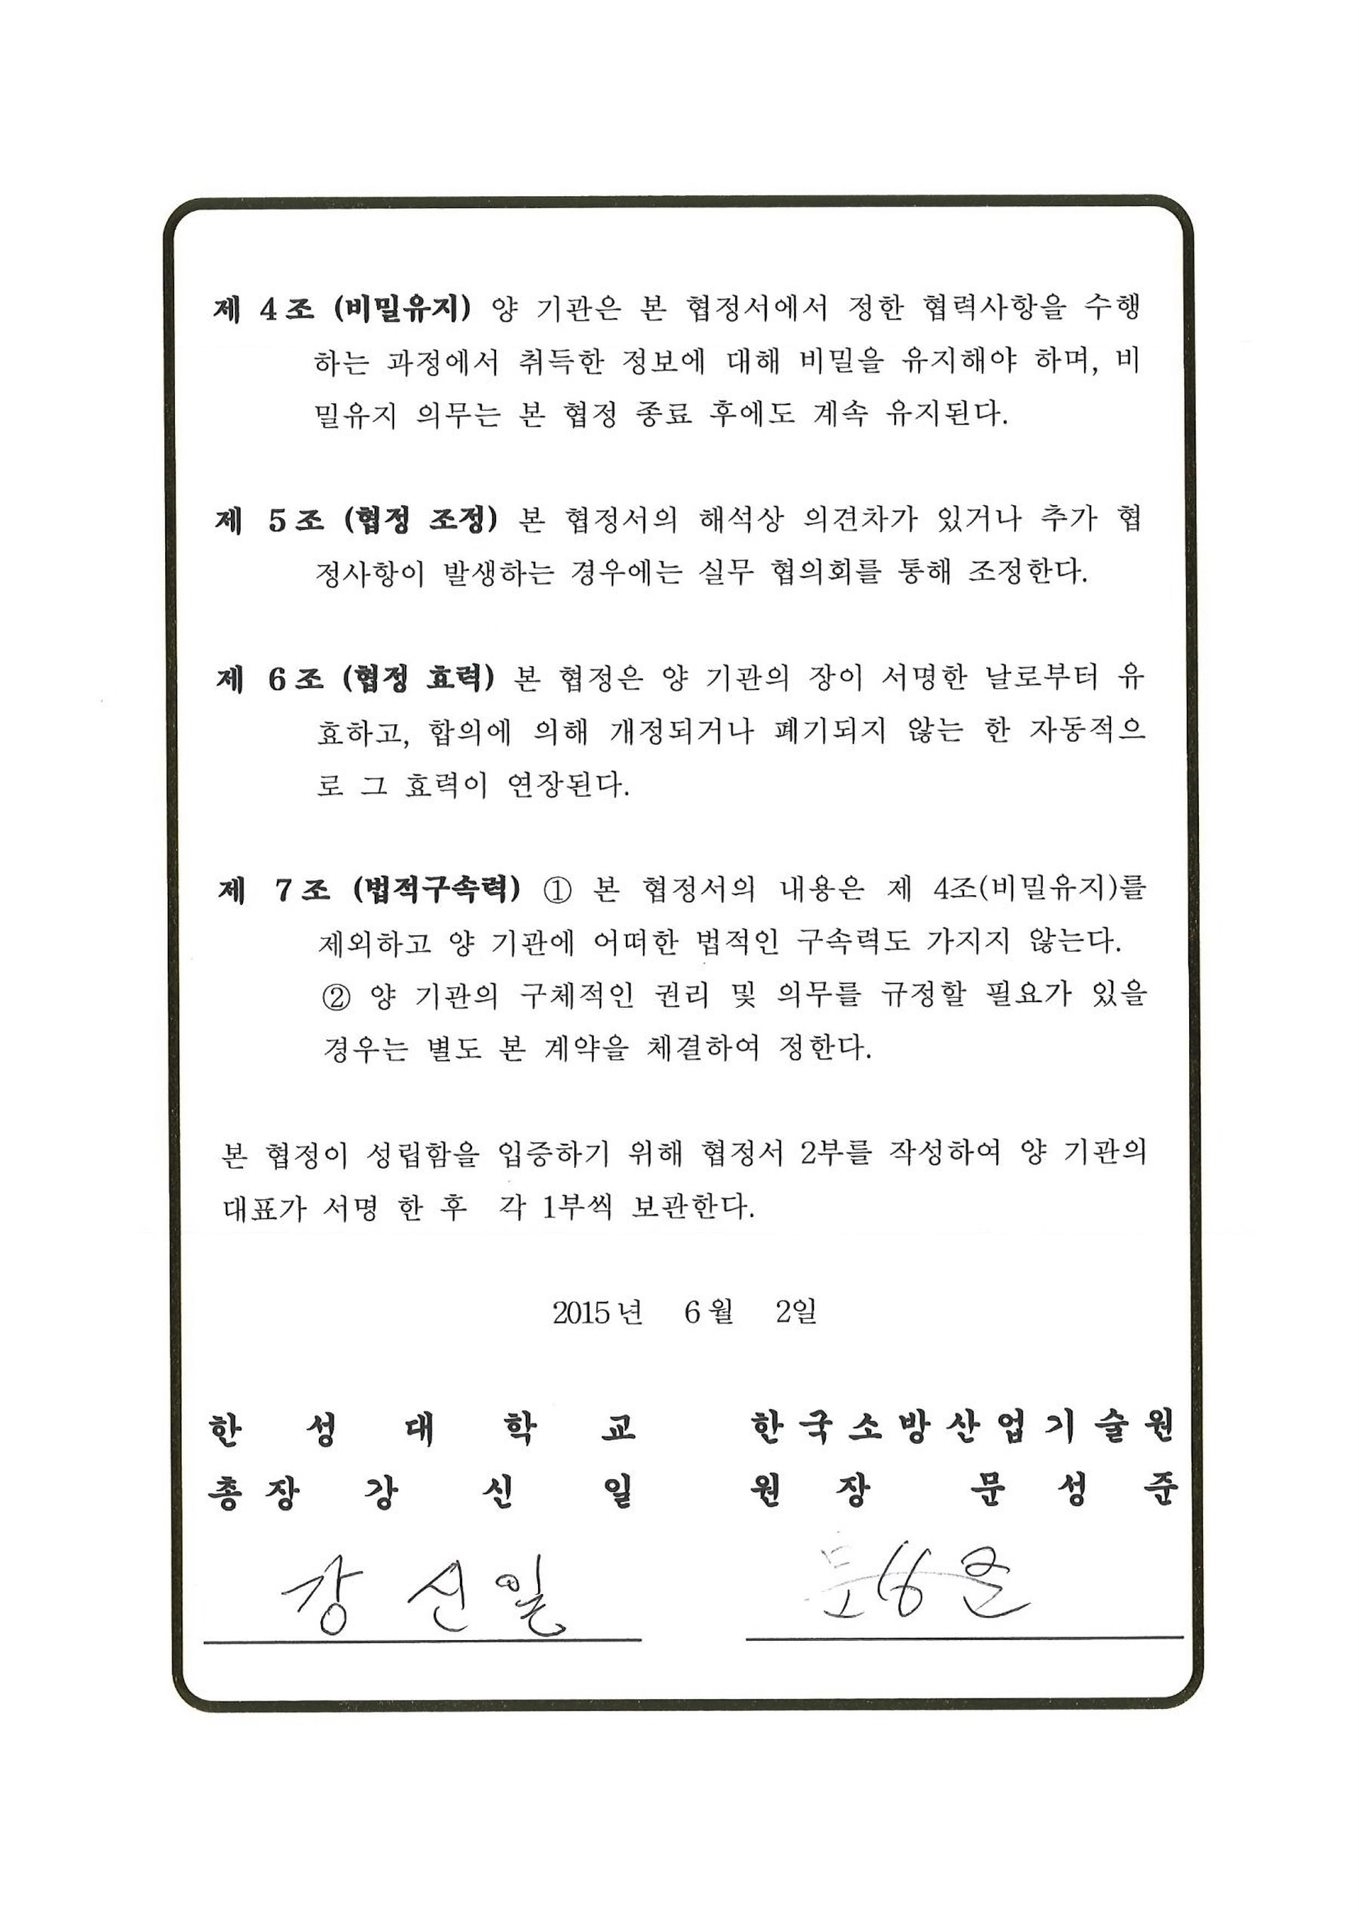 제 4조 (비밀유지) 양 기관은 본 협정서에서 정한 협력사항을 수행
하는 과정에서 취득한 정보에 대해 비밀을 유지해야 하며, 비
밀유지 의무는 본 협정 종료 후에도 계속 유지된다.
제 5조 (협정 조정) 본 협정서의 해석상 의견차가 있거나 추가 협
정사항이 발생하는 경우에는 실무 협의회를 통해 조정한다.
제 6조 (협정 효력) 본 협정은 양 기관의 장이 서명한 날로부터 유
효하고, 합의에 의해 개정되거나 폐기되지 않는 한 자동적으
로 그 효력이 연장된다.
제 7조 (법적구속력) ① 본 협정서의 내용은 제 4조(비밀유지)를
제외하고 양 기관에 어떠한 법적인 구속력도 가지지 않는다.
② 양 기관의 구체적인 권리 및 의무를 규정할 필요가 있을
경우는 별도 본 계약을 체결하여 정한다.
본 협정이 성립함을 입증하기 위해 협정서 2부를 작성하여 양 기관의
대표가 서명 한 후 각 1부씩 보관한다.
2015년 6월 2일
한 성 대 학 교 한국소방산업기술원
총장 강 신 일 원 장 문 성 준
강 신 일 문성준